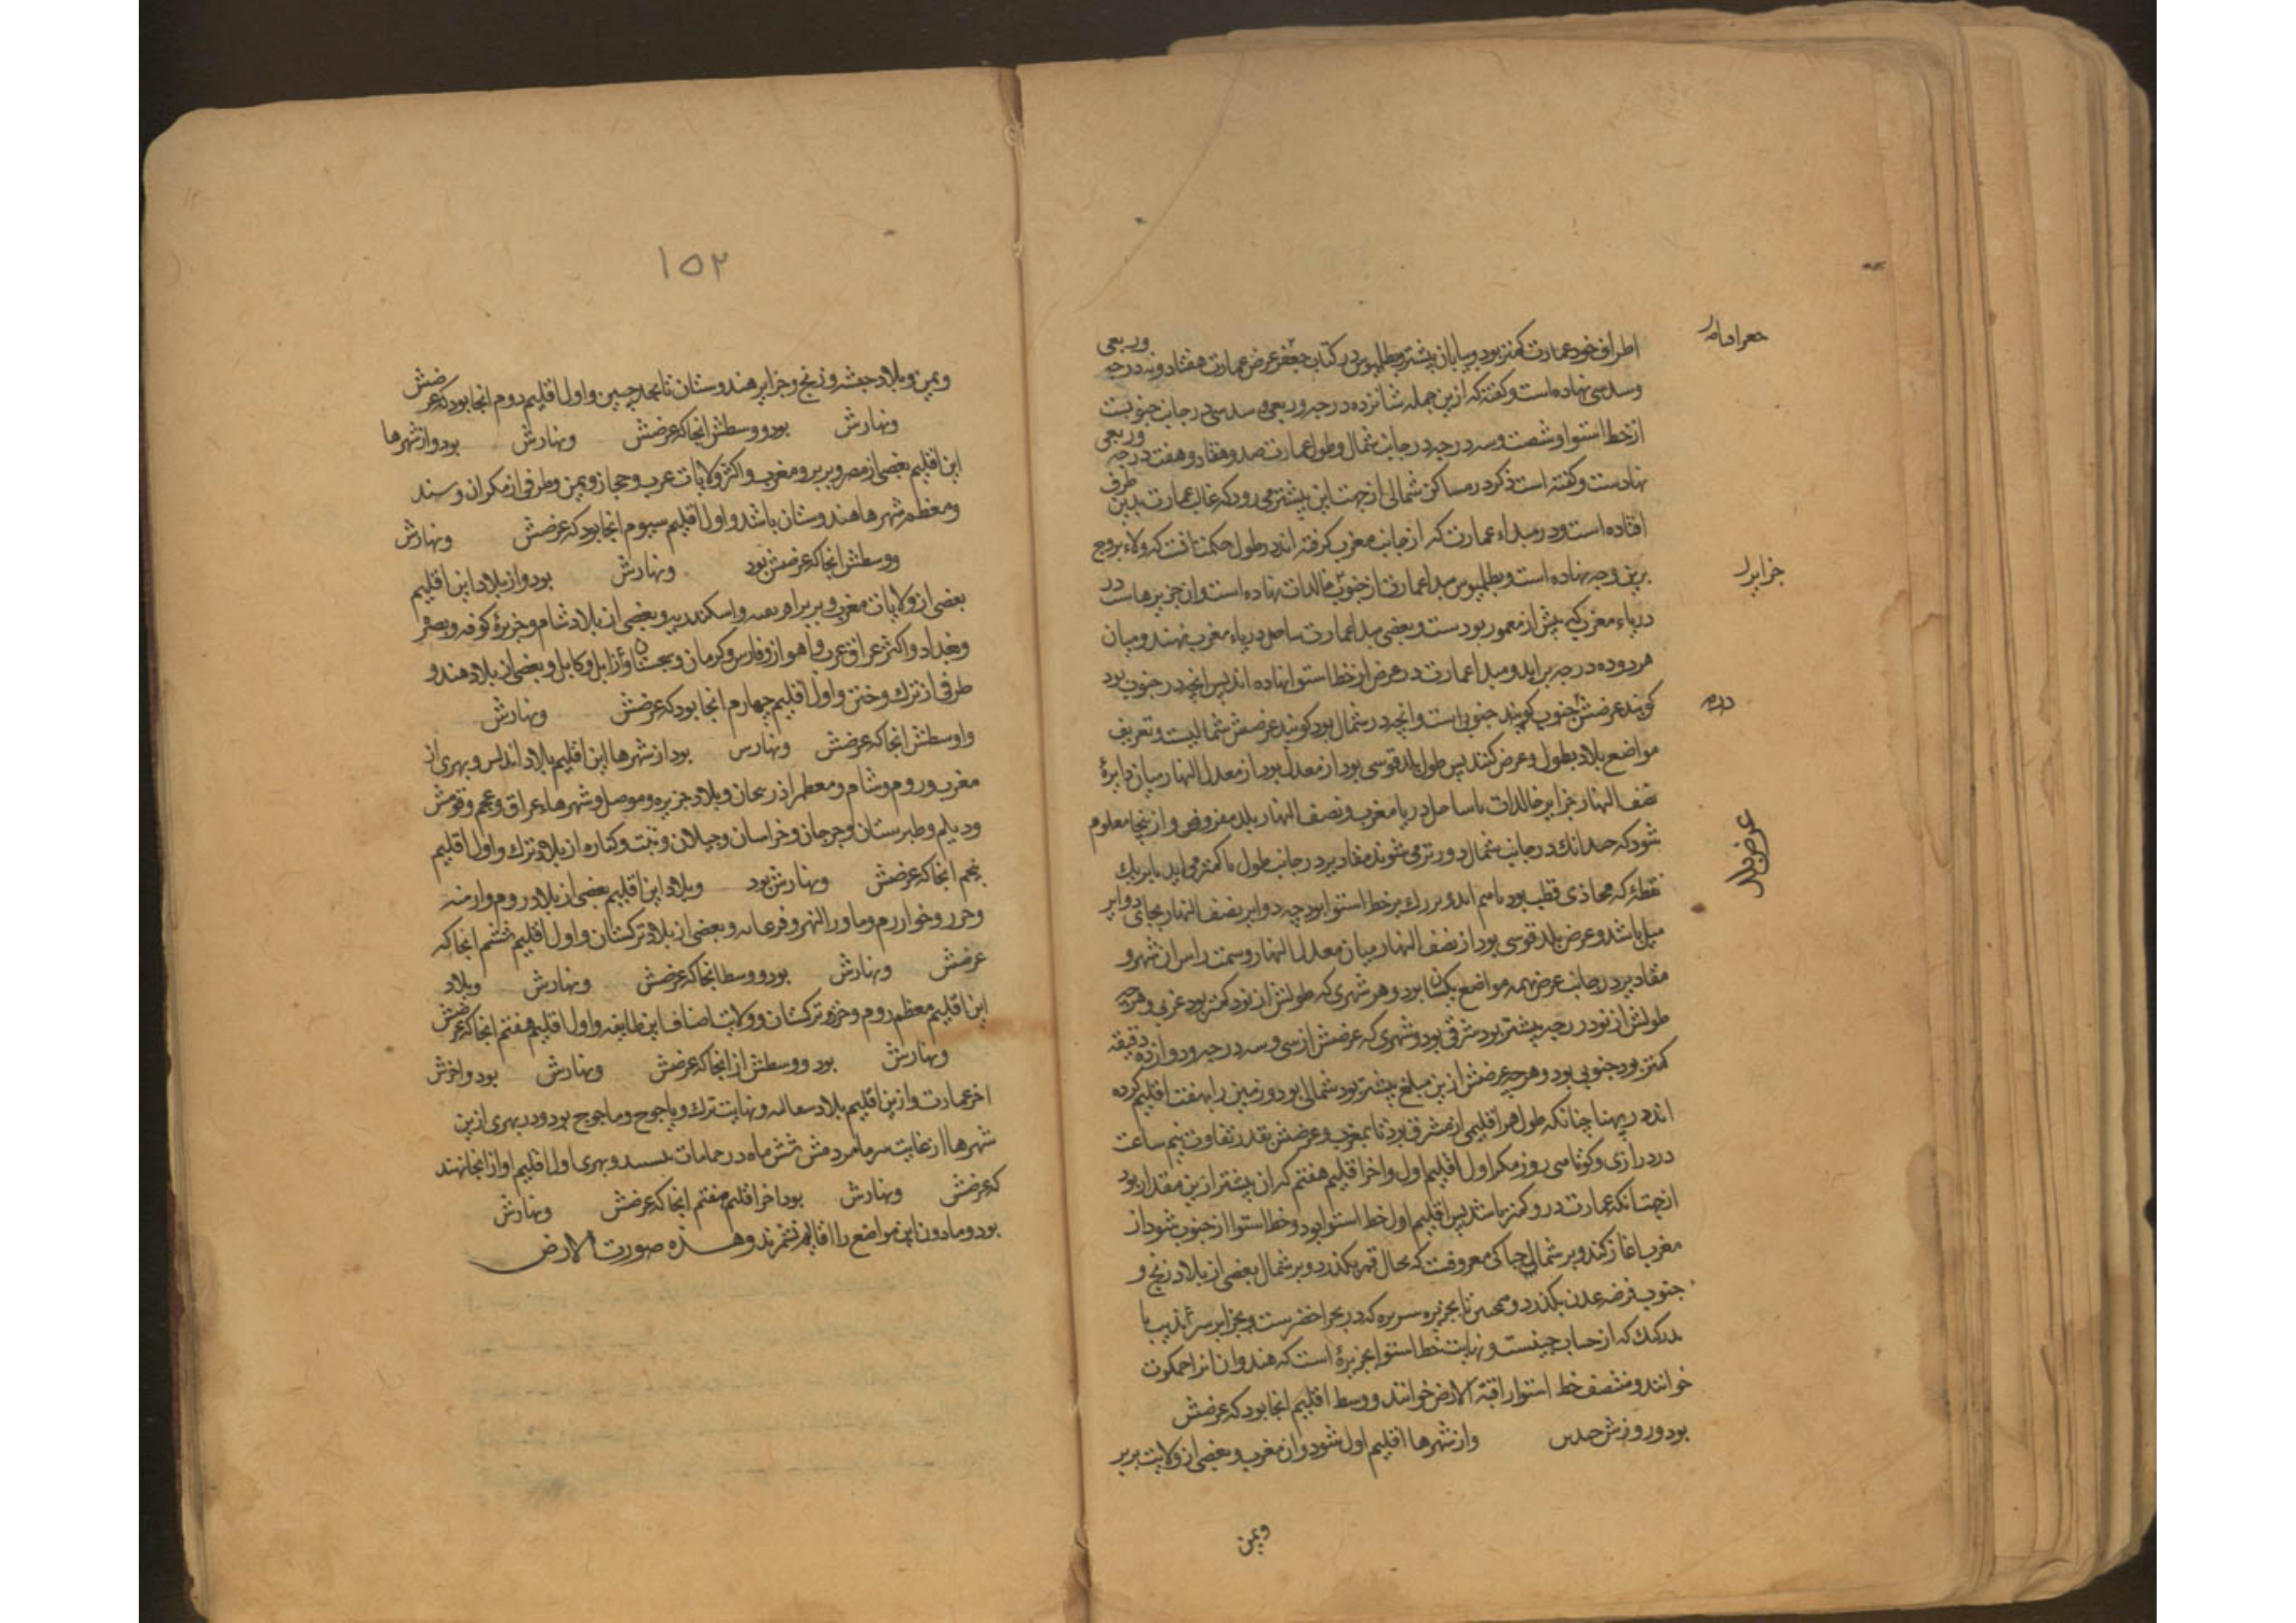 اطراف خود عمارت کمتر بود و بیابان بیشتر و بطلمیوس در کتاب جغر عرض عمارت هفتاد و نه درجه وربعی
وسدسی نهاده است و کفته که ازین جمله شانزده درجه وربعی و سدسی در جانب جنوبست
از خط استوا و شصت و سه درجه در جانب شمال و طول عمارت صد و هفتاد و هفت درجه وربعی
نهادست و کفته است ذکر در مساکن شمالی از جهت این بیشتر می رود که غالب عمارت بدین طرف
افتاده است و در مبداء عمارت که از جانب مغرب کرفته اند در طول حکمت انست که ولاء بروج
برین وجه نهاده است و بطلمیوس مبدا عمارت از جنوب خالدات نهاده است و ان جزیرهاست در
دریاء مغرب که پیش از معمور بودست و بعضی مبدا عمارت ساحل دریاء مغرب نهند و میان
هر دو ده درجه براید و مبدا عمارت در عرض از خط استوا نهاده اند پس انچه در جنوب بود
کویند عرضش جنوب کویند جنوبی است و انچه در شمال بود کویند عرضش شمالیست و تعریف
مواضع بلاد بطول و عرض کنند پس طول بلد قوسی بود از معدل بود از معدل النهار میان دایرۀ
نصف النهار جزایر خالدات یا ساحل دریا مغرب و نصف النهار بلد مفروض و از ینجا معلوم
شود که چندانک در جانب شمال دورتر می شوند مقادیر در جانب طول با کمتر می اید تا بریک
نقطۀ که محاذی قطب بود باسم اید و بزرک بر خط استوا بود چه دوایر نصف النهار بجای دوایر
میل باشد و عرض بلد قوسی بود از نصف النهار میان معدل النهار و سمت راس ان شهر و
مقادیر در جانب عرض همه مواضع یکسان بود و هر شهری که طولش از نود کمتر بود غربی و هرچه
طولش از نود درجه بیشتر بود شرقی بود و شهری که عرضش از سی و سه درجه و دوازده دقیقه
کمتر بود جنوبی بود و هرچه عرضش ازین مبلغ بیشتر بود شمالی بود و زمین را بهفت اقلیم کرده
اند در پهنا چنانکه طول هر اقلیمی از مشرق بود تا بمغرب و عرضش بقدر تفاوت نیم ساعت
در درازی و کوتاهی روز مکر اول اقلیم اول و اخر اقلیم هفتم که ان بیشتر ازین مقدار بود
از جهت انکه عمارت درو کمتر باشد پس اقلیم اول خط استوا بود و خط استوا از جنوب شود از
مغرب اغاز کند و بر شمالی جبا کی معروفت که بجال قمر بکذرد و بر شمال بعضی از بلاد زنج و
جنوب فرضه عدن بکذرد و همچنین تا بجزیره سریره که در بحر اخضرست و بجزایر سراندیب با
که از حساب چینست و نهایت خط استوا بجزیرۀ است که هندوان انرا جمکوت
خوانند و منتصف خط استوا را قبة الارض خوانند و وسط اقلیم انجا بود که عرضش
بود و روزش چندین و از شهرها اقلیم اول شود و ان مغرب و بعضی از ولایت بربر
ویمن
جزایر
عرض بلد
١٥٢
ویمن و بلاد حبشه و زنج و جزایر هندوستان تا بحد چین و اول اقلیم دوم انجا بود که عرضش
ونهارش بود و وسطش انجا که عرضش ونهارش بود و از شهرها
این اقلیم بعضی از مصر و بربر و مغرب و اکثر ولایات عرب و حجاز و یمن و طرفی از مکران و سند
ومعظم شهرها هندوستان باشد و اول اقلیم سیوم انجا بود که عرضش ونهارش
ووسطش انجا که عرضش بود ونهارش بود و از بلاد این اقلیم
بعضی از ولایات مغرب و بربر و افریقیه و اسکندریه و بعضی از بلاد شام و جزیرۀ کوفه و بصره
وبغداد و اکثر عراق عرب و اهواز و فارس و کرمان و سجستان و زابل و کابل و بعضی از بلاد هند و
طرفی از ترک و ختن و اول اقلیم چهارم انجا بود که عرضش ونهارش
واوسطش انجا که عرضش ونهارس بود از شهرها این اقلیم بلاد اندلس و بهری از
مغرب و روم و شام و معظم اذربیجان و بلاد جزیره و موصل و شهرهاء عراق و عجم و قومش
ودیلم و طبرستان و جرجان و خراسان و جیلان و تبت و کناره از بلاد ترک و اول اقلیم
پنجم انجا که عرضش ونهارش بود وبلاد این اقلیم بعضی از بلاد روم و ارمنیه
وخزر و خوارزم و ماوراالنهر و فرغانه و بعضی از بلاد ترکستان و اول اقلیم ششم انجا که
عرضش ونهارش بود و وسط انجا که عرضش ونهارش وبلاد
این اقلیم معظم روم و خزر و ترکستان و ولایت اصناف این طایفه و اول اقلیم هفتم انجا که عرضش
ونهارش بود و وسطش از انجا که عرضش ونهارش بود و اخرش
اخر عمارت و ازین اقلیم بلاد سقالبه و نهایت ترک و یاجوج و ماجوج بود و در بهری ازین
شهرها از غایت سرما مردمش شش ماه در حمامات نشینند و بهری اول اقلیم او از انجا نهند
که عرضش ونهارش بود اخر اقلیم هفتم انجا که عرضش ونهارش
بود و مادون این مواضع را اقالیم نشمرند و هذه صورت الارض